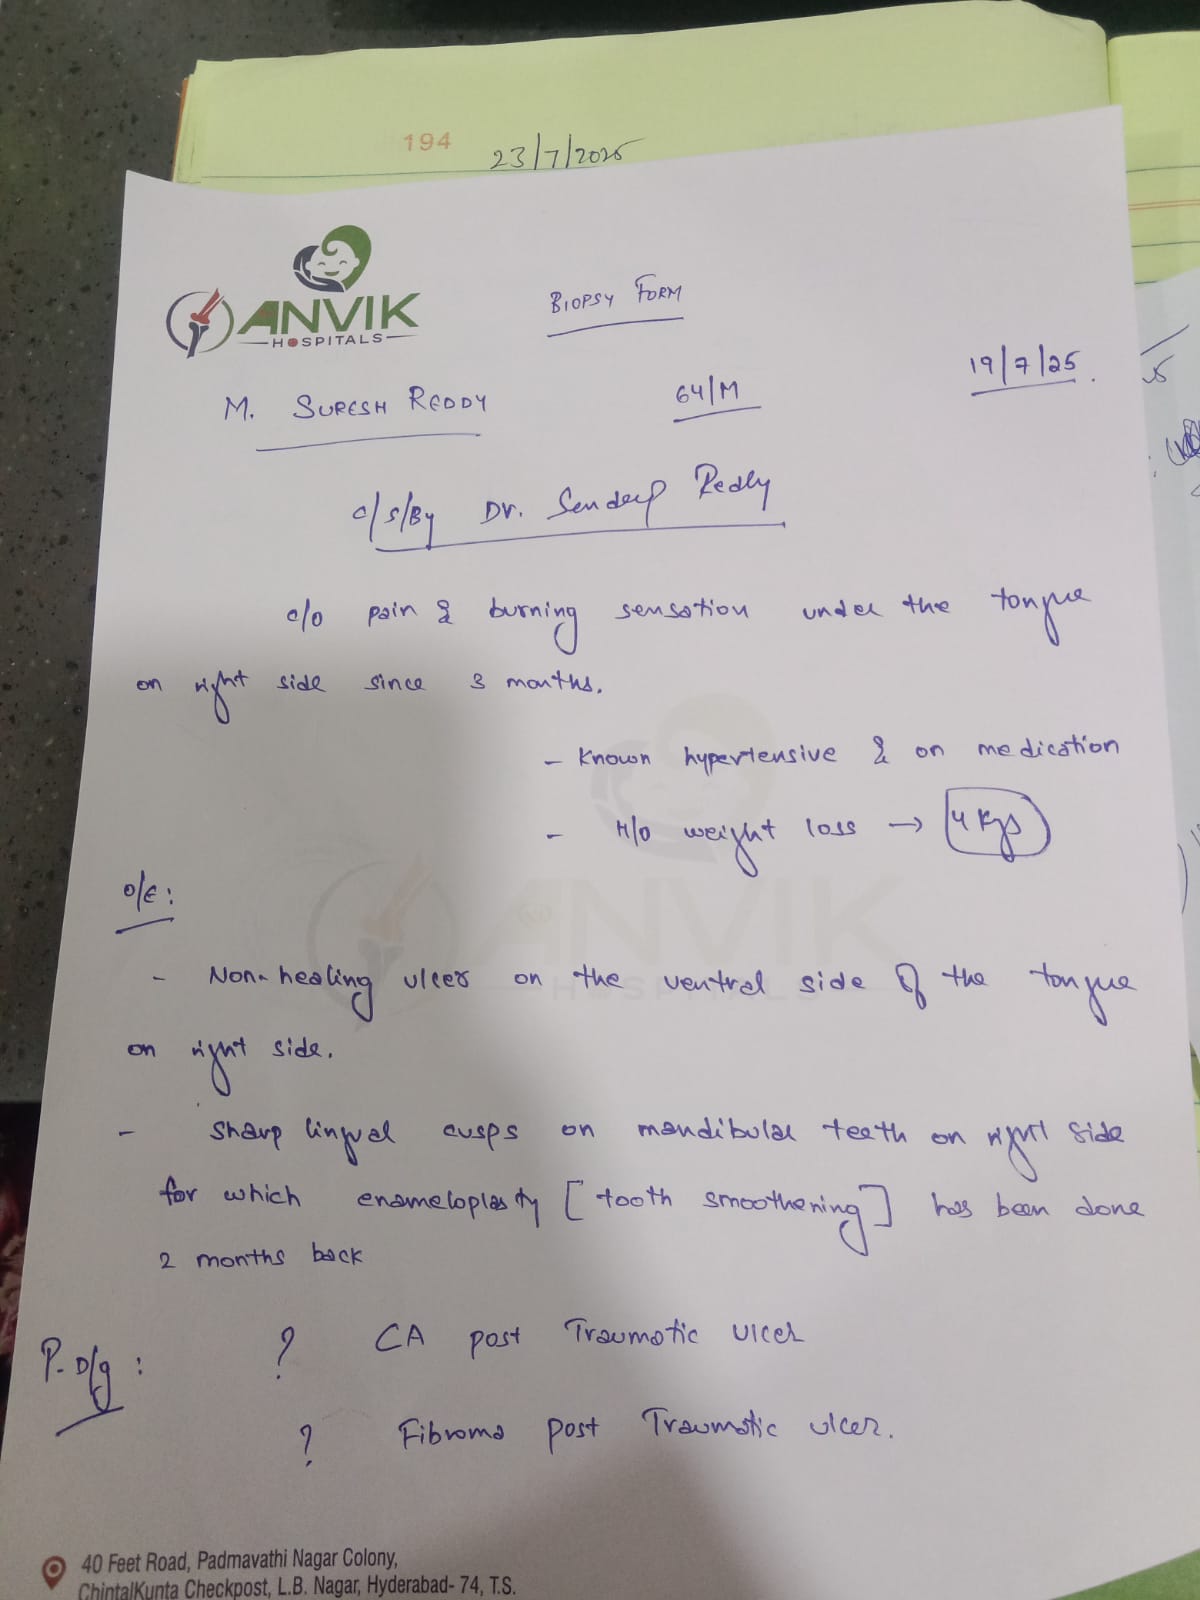 194
23/7/2025
ANVIK
HOSPITALS
BIOPSY FORM
19/7/25.
M. SURESH REDDY
64/M
c/s/By Dr. Sandeep Reddy
c/o pain & burning sensation under the tongue
on right side since 3 months.
- Known hypertensive & on medication
- H/o weight loss → 4 Kgs
O/E:
- Non-healing ulcer on the ventral side of the tongue
on right side.
- Sharp lingual cusps on mandibular teeth on right side
for which enameloplasty [tooth smoothening] has been done
2 months back
P.D/g : ? CA post Traumatic ulcer
? Fibroma post Traumatic ulcer.
40 Feet Road, Padmavathi Nagar Colony,
ChintalKunta Checkpost, L.B. Nagar, Hyderabad- 74, T.S.